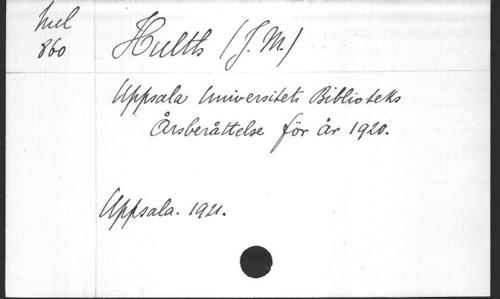 hul
860
Hulth (J. M.)
Uppsala Universitets Biblioteks
Årsberättelse för år 1920.
Uppsala. 1921.